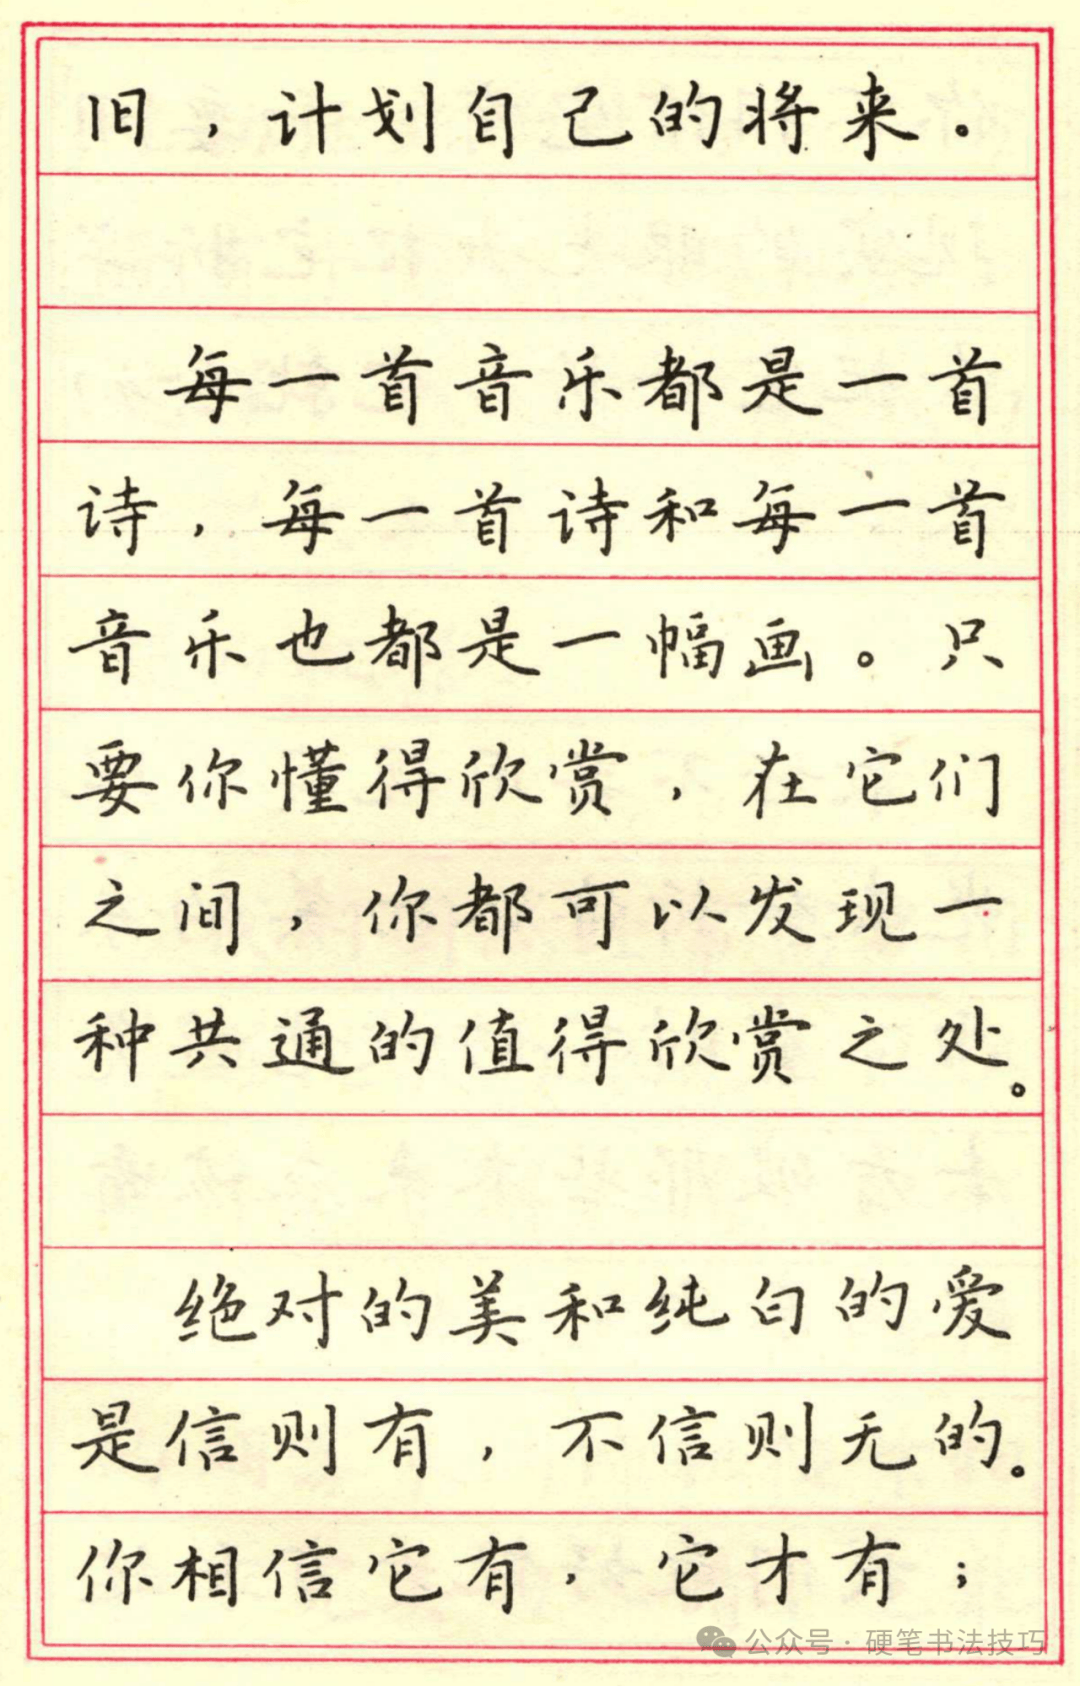 旧，计划自己的将来。
每一首音乐都是一首
诗，每一首诗和每一首
音乐也都是一幅画。只
要你懂得欣赏，在它们
之间，你都可以发现一
种共通的值得欣赏之处。
绝对的美和纯白的爱
是信则有，不信则无的。
你相信它有，它才有；
公众号·硬笔书法技巧